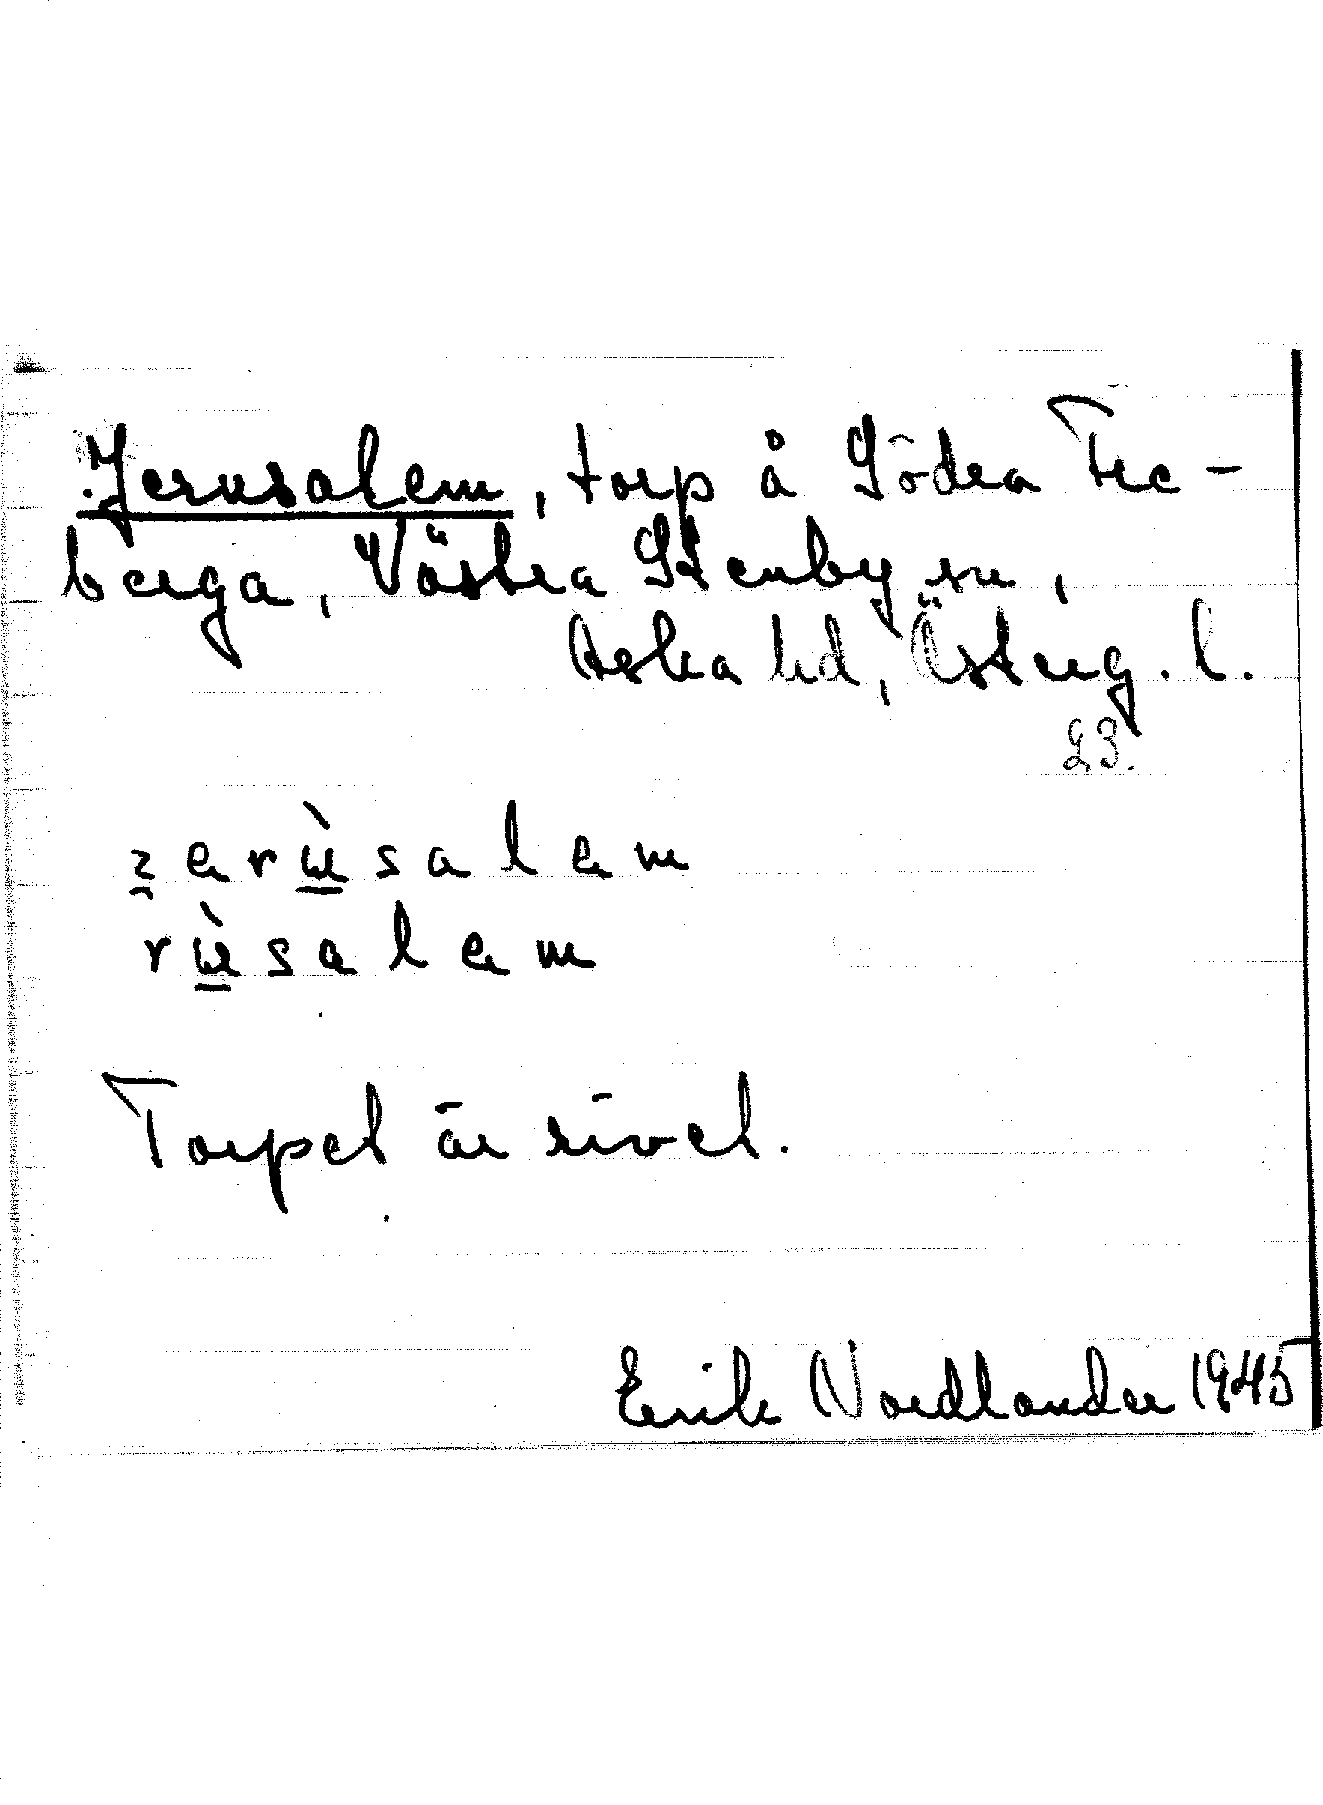 Jerusalem, torp å Södra Fre-
berga, Västra Stenby sn,
Aska hd, Österg. l.
23.
zerùsalem
rùsalem
Torpet är rivet.
Erik Nordlander 1945